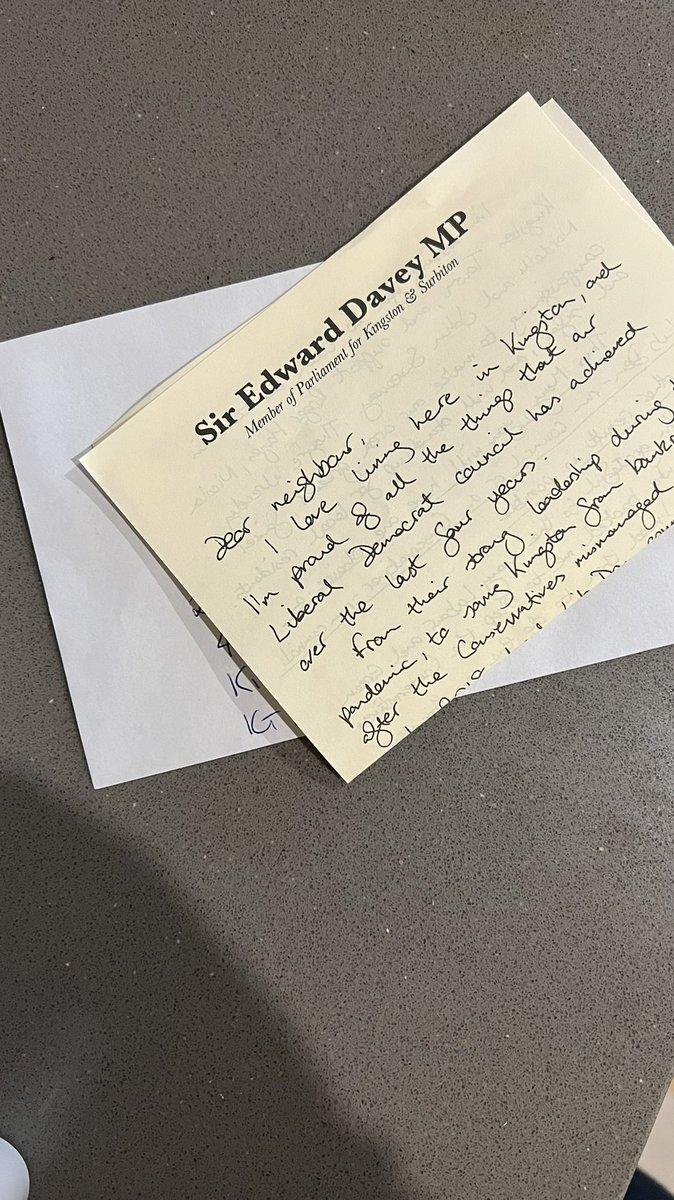 Sir Edward Davey MP
Member of Parliament for Kingston & Surbiton
Dear neighbour,
I love living here in Kingston, and
I'm proud of all the things that our
Liberal Democrat council has achieved
over the last four years.
From their strong leadership during
pandemic, to saving Kingston from
after the Conservatives mismanaged